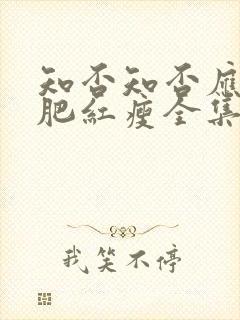 知否知否應
肥紅瘦全集
我笑不停